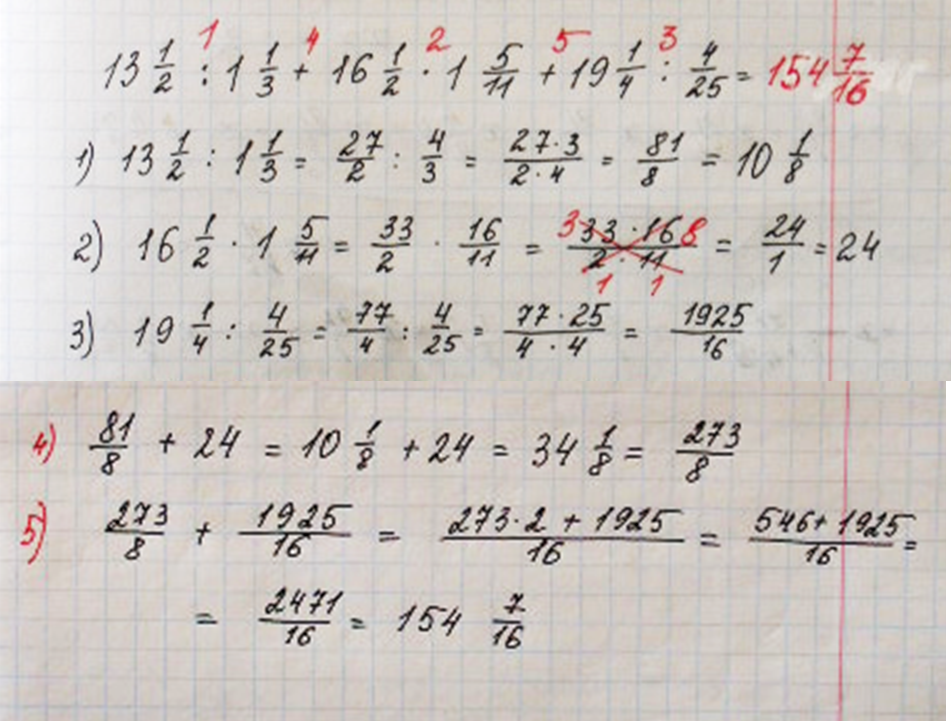 13 1/2 : 1 1/3 + 16 1/2 · 1 5/11 + 19 1/4 : 4/25 = 154 7/16
1) 13 1/2 : 1 1/3 = 27/2 : 4/3 = 27·3/2·4 = 81/8 = 10 1/8
2) 16 1/2 · 1 5/11 = 33/2 · 16/11 = 33·16/2·11 = 24/1 = 24
3) 19 1/4 : 4/25 = 77/4 : 4/25 = 77·25/4·4 = 1925/16
4) 81/8 + 24 = 10 1/8 + 24 = 34 1/8 = 273/8
5) 273/8 + 1925/16 = 273·2 + 1925/16 = 546 + 1925/16 =
= 2471/16 = 154 7/16